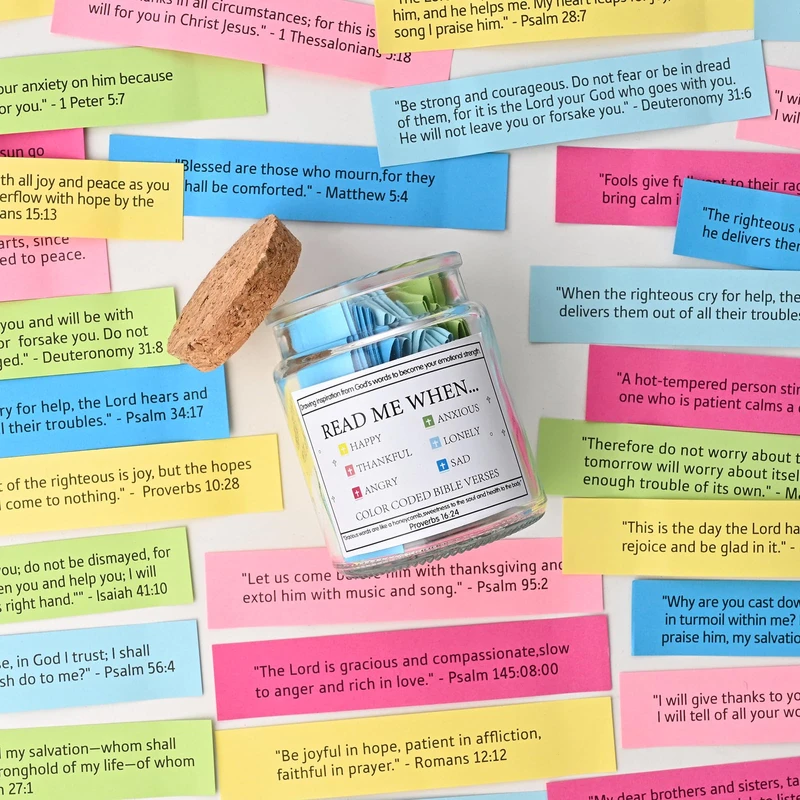 him, and he helps me. My heart leaps for joy,
song I praise him." - Psalm 28:7
in all circumstances; for this is
will for you in Christ Jesus." - 1 Thessalonians 5:18
our anxiety on him because
or you." - 1 Peter 5:7
"Be strong and courageous. Do not fear or be in dread
of them, for it is the Lord your God who goes with you.
He will not leave you or forsake you." - Deuteronomy 31:6
"I wi
I wil
sun go
"Blessed are those who mourn,for they
hall be comforted." - Matthew 5:4
th all joy and peace as you
erflow with hope by the
ans 15:13
"Fools give fu vent to their rag
bring calm i
"The righteous
he delivers them
arts, since
ed to peace.
"When the righteous cry for help, the
delivers them out of all their troubles
you and will be with
or forsake you. Do not
ged." - Deuteronomy 31:8
"A hot-tempered person stir
one who is patient calms a
ry for help, the Lord hears and
l their troubles." - Psalm 34:17
"Therefore do not worry about t
tomorrow will worry about itsel
enough trouble of its own." - Ma
t of the righteous is joy, but the hopes
come to nothing." - Proverbs 10:28
"This is the day the Lord ha
rejoice and be glad in it." -
Drawing inspiration from God's words to become your emotional strengh
READ ME WHEN...
HAPPY
ANXIOUS
THANKFUL
LONELY
ANGRY
SAD
COLOR CODED BIBLE VERSES
"Gracious words are like a honeycomb,sweetness to the soul and health to the body"
Proverbs 16:24
you; do not be dismayed, for
en you and help you; I will
s right hand."" - Isaiah 41:10
"Let us come before him with thanksgiving and
extol him with music and song." - Psalm 95:2
"Why are you cast dow
in turmoil within me?
praise him, my salvatio
se, in God I trust; I shall
sh do to me?" - Psalm 56:4
"The Lord is gracious and compassionate,slow
to anger and rich in love." - Psalm 145:08:00
"I will give thanks to yo
I will tell of all your wo
my salvation—whom shall
ronghold of my life—of whom
27:1
"Be joyful in hope, patient in affliction,
faithful in prayer." - Romans 12:12
"My dear brothers and sisters, ta